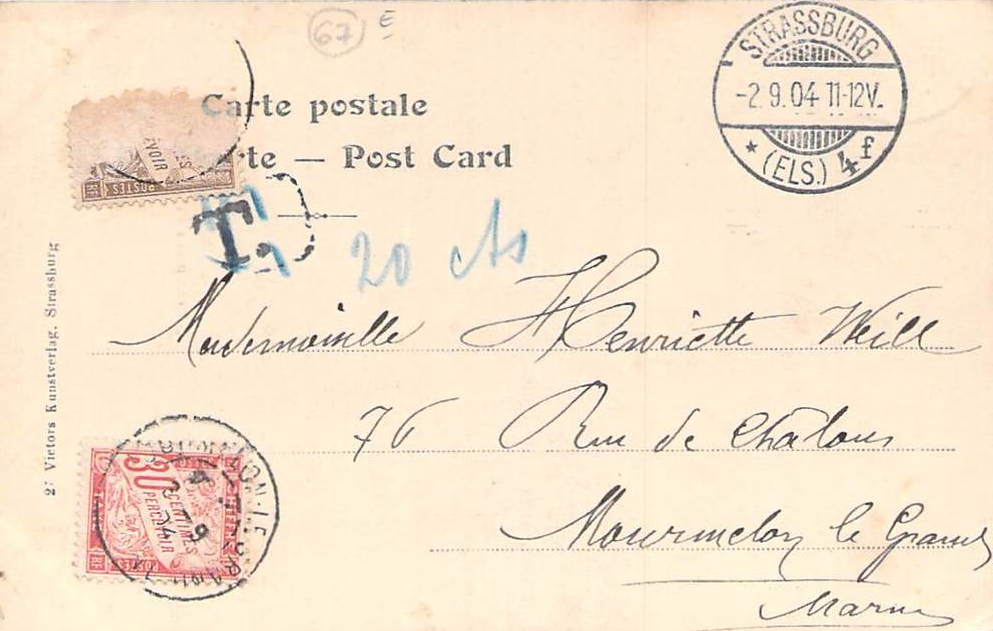 67 E
STRASSBURG
-2.9.04 11-12V.
* (ELS.) 4f
Carte postale
te — Post Card
EVOIR
POSTES
T.
20 cts
Mademoiselle Henriette Weill
76 Rue de Châlons
Mourmelon le Grand
Marne
2 Victors Kunstverlag, Strassburg
30
CENTIMES
PERCEVOIR
POSTES